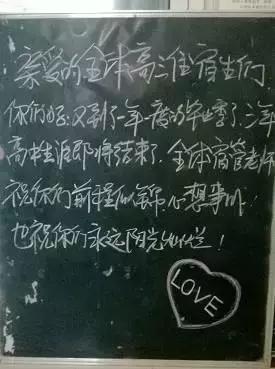 亲爱的全体高三住宿生们
你们好.又到了一年一度的毕业季了.三年
高中生活即将结束了.全体宿管老师
祝你们前程似锦心想事成!
也祝你们永远阳光灿烂!
LOVE